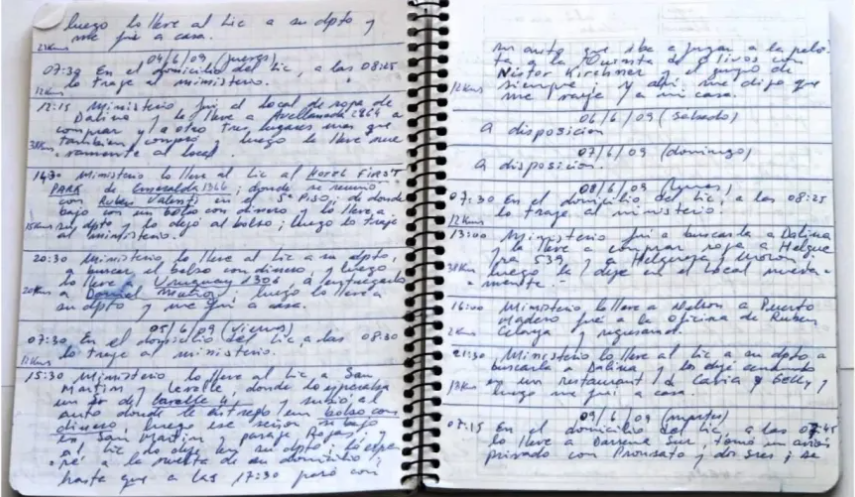 luego lo lleve al Lic a su dpto y
me fui a casa.
23Kms
04/6/09 (jueves)
07:30 En el domicilio del Lic, a las 08:25
lo traje al ministerio.
12Kms
12:15 Ministerio, fui al local de ropa de
Dalina y la lleve a Avellaneda a
comprar y a otro tres lugares mas que
tambien compro y luego la lleve nue
38Kms vamente al local.
14:30 Ministerio lo lleve al Lic al Hotel FIRST
PARK de Esmeralda 1366; donde se reunio
con Ruben Valenti en el 5° PISO, de donde
bajo con un bolso con dinero y lo lleve a
15Kms su dpto y lo dejó al bolso; luego lo traje
al ministerio.
20:30 Ministerio lo lleve al Lic a su dpto,
a buscar el bolso con dinero y luego
lo lleve a Uruguay 1306 a entregarlo
20Kms a Daniel Muñoz, luego lo lleve a
su dpto y me fui a casa.
05/6/09 (viernes)
07:30 En el domicilio del Lic a las 08:30
lo traje al ministerio.
12Kms
15:30 Ministerio lo lleve al Lic a San
Martin y Lavalle, donde lo esperaba
un Sr del y subio al
auto donde le entrego un bolso con
dinero, luego ese señor se bajo
en San Martin y paraje Rojas, y
al Lic lo deje en su dpto y lo espe
re a la vuelta de su domicilio;
hasta que a las 17:30 paró con
su auto que iba a jugar a la pelo
ta a la Quinta de Olivos con
Nestor Kirchner y el grupo de
12Kms siempre y ahi me dijo que
me vaya a mi casa.
06/6/09 (sabado)
A disposicion
07/6/09 (domingo)
A disposicion
08/6/09 (lunes)
07:30 En el domicilio del Lic, a las 08:25
lo traje al ministerio.
12Kms
13:00 Ministerio fui a buscarla a Dalina
y la lleve a comprar ropa a Helgue
ra 539 y a Helguera y Moron;
38Kms luego la dejé en el local nueva-
mente.-
16:00 Ministerio lo lleve a Nelson a Puerto
Madero fue a la oficina de Ruben
2Kms y regresando.
21:30 Ministerio lo lleve al Lic a su dpto a
buscarla a Dalina y los dejé cenando
en un restaurant de Cabia y Gelly y
13Kms luego me fui a casa.
09/6/09 (martes)
07:15 En el domicilio del Lic, a las 07:45
lo lleve a Darsena Sur, tomó un avion
privado con y dos sres; se